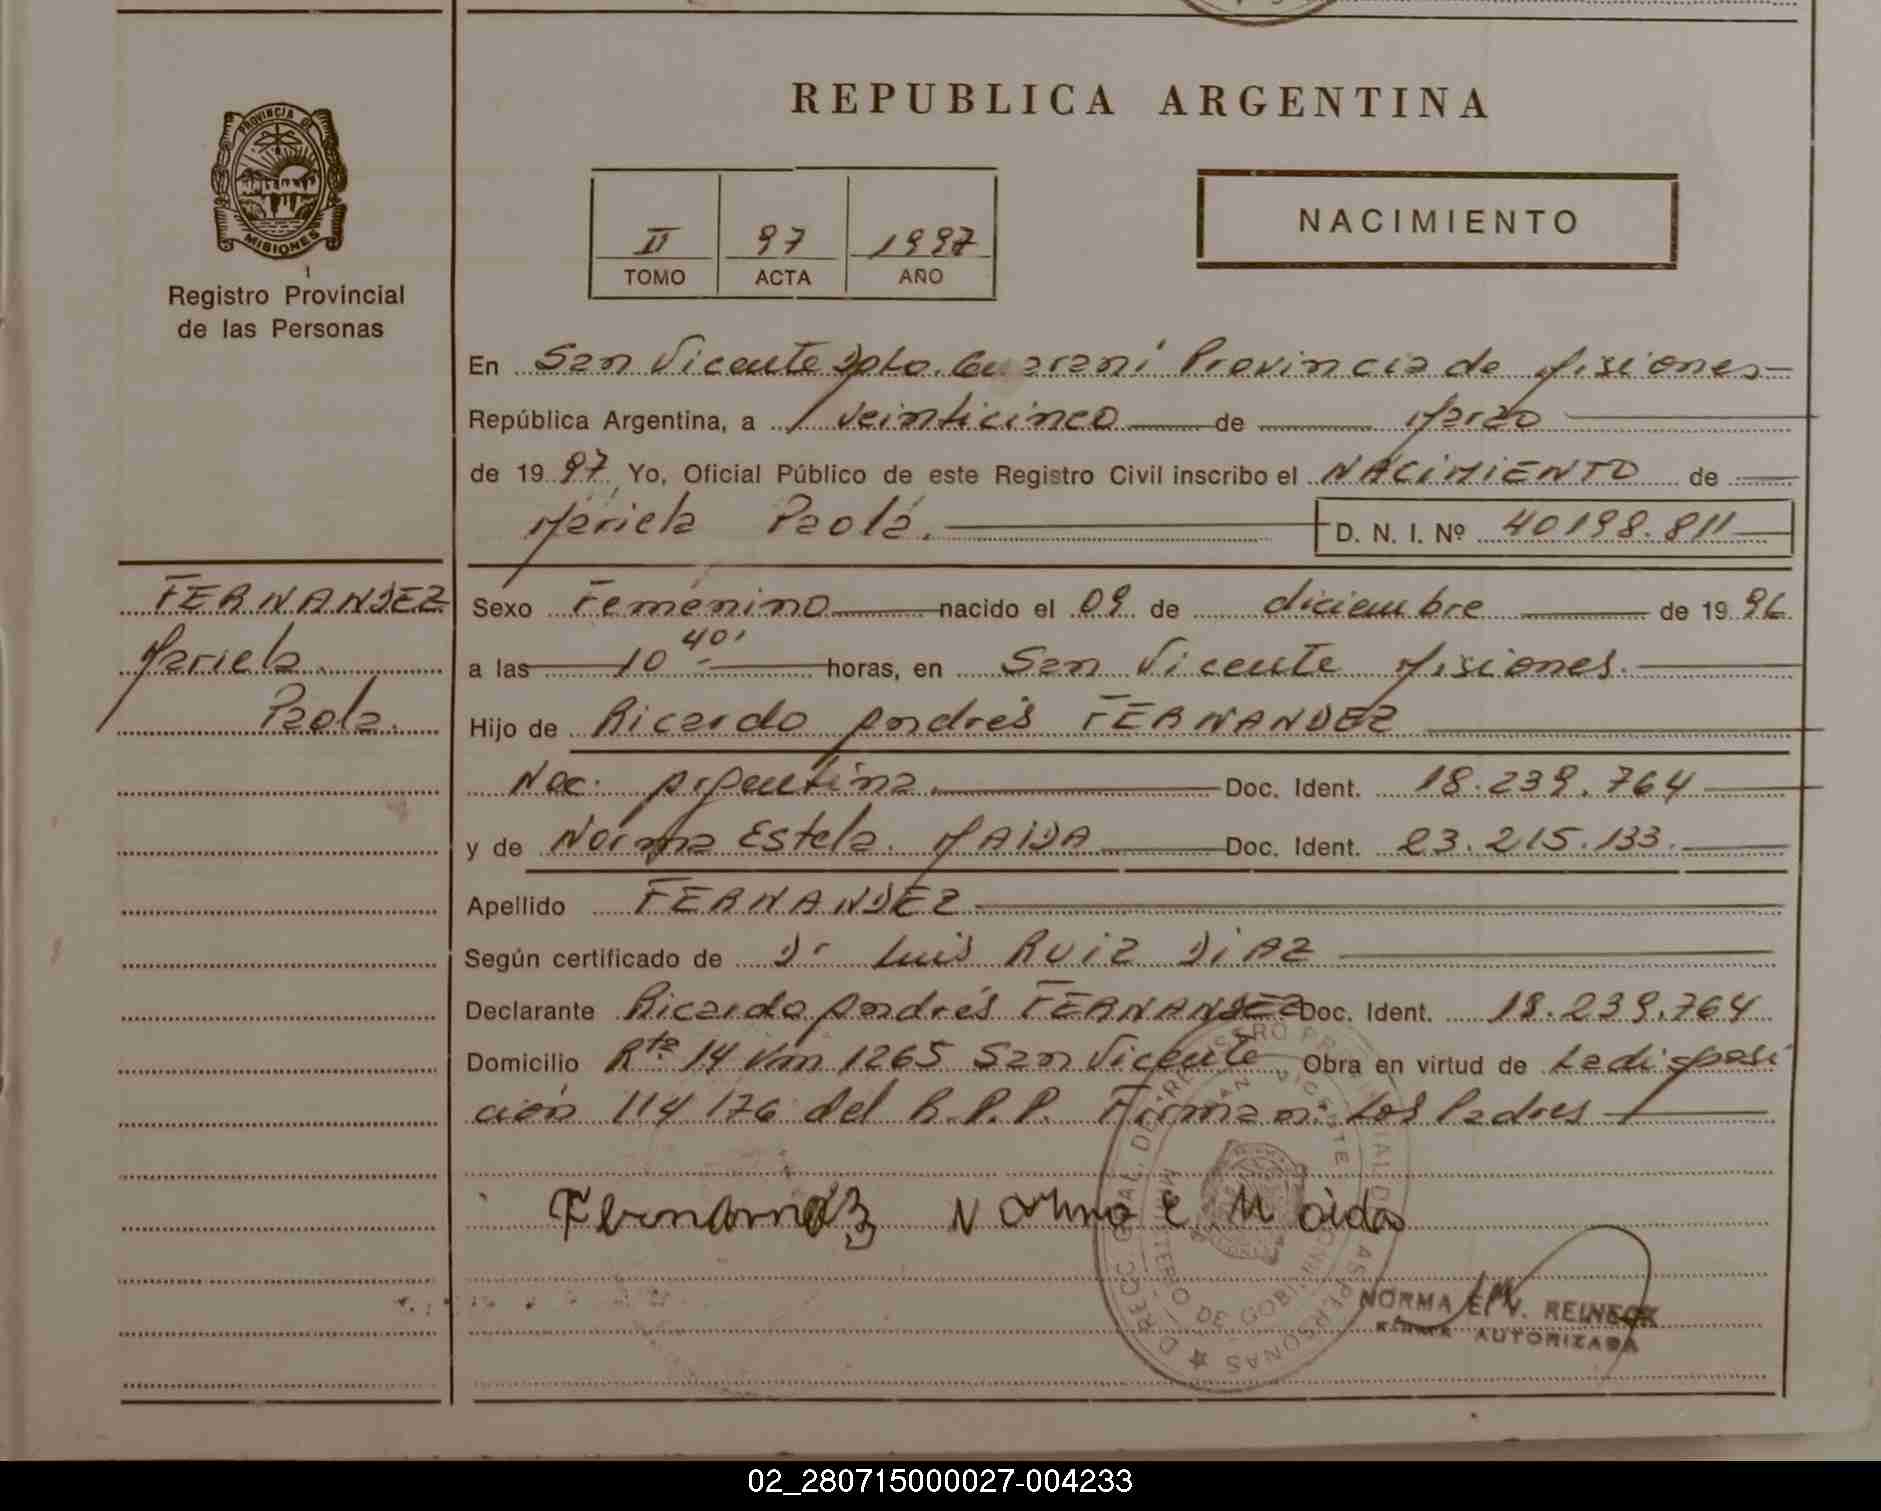 REPUBLICA ARGENTINA
PROVINCIA DE
MISIONES
Registro Provincial
de las Personas
II 97 1997
TOMO ACTA AÑO
NACIMIENTO
En San Vicente Dpto. Guaraní Provincia de Misiones
República Argentina, a veinticinco de Marzo
de 1997 Yo, Oficial Público de este Registro Civil inscribo el NACIMIENTO de
Mariela Paola. D. N. I. Nº 40198.811
FERNANDEZ
Mariela
Paola.
Sexo Femenino nacido el 09 de diciembre de 1996
a las 10 40' horas, en San Vicente Misiones.
Hijo de Ricardo Andrés FERNANDEZ
Nac. Argentina Doc. Ident. 18.239.764
y de Norma Estela MAIDA Doc. Ident. 23.215.133.
Apellido FERNANDEZ
Según certificado de Dr Luis RUIZ DIAZ
Declarante Ricardo Andrés FERNANDEZ Doc. Ident. 18.239.764
Domicilio Rta 14 km 1265 San Vicente Obra en virtud de La disposi
ción 114/176 del R.P.P. Firman: Los Padres
Fernandez Norma E Maida
DIRECC. GRAL. DEL REGISTRO PROVINCIAL DE LAS PERSONAS
SAN VICENTE
MINISTERIO DE GOBIERNO
NORMA E. V. REINECK
FIRMA AUTORIZADA
02_280715000027-004233